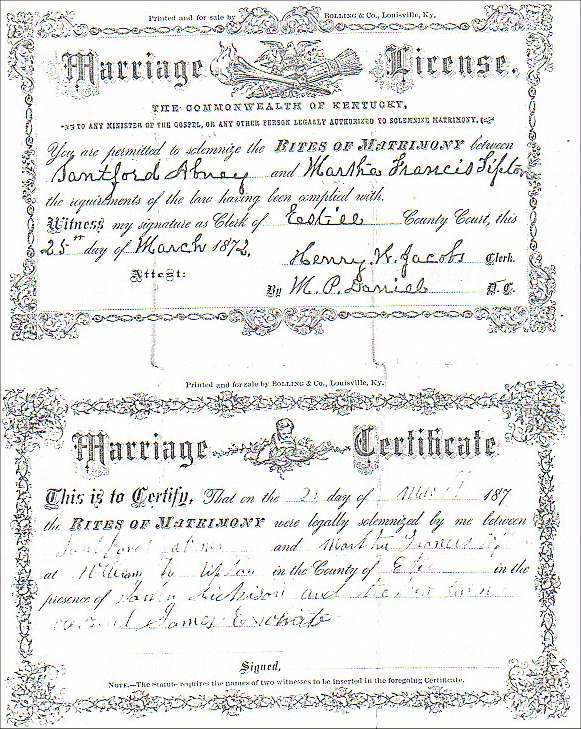 Printed and for sale by BOLLING & Co., Louisville, Ky.
Marriage License.
THE COMMONWEALTH OF KENTUCKY,
TO ANY MINISTER OF THE GOSPEL, OR ANY OTHER PERSON LEGALLY AUTHORIZED TO SOLEMNIZE MATRIMONY.
You are permitted to solemnize the RITES OF MATRIMONY between
Santford Abney and Martha Francis Tipton
the requirements of the law having been complied with.
Witness my signature as Clerk of Estill County Court, this
25th day of March 1872,
Henry W. Jacobs Clerk.
Attest:
By M. P. Daniel D. C.
Printed and for sale by BOLLING & Co., Louisville, Ky.
Marriage Certificate
This is to Certify, That on the day of 187
the RITES OF MATRIMONY were legally solemnized by me between
and Martha Francis
at William Tipton in the County of in the
presence of and
James
Signed,
NOTE.—The Statute requires the names of two witnesses to be inserted in the foregoing Certificate.